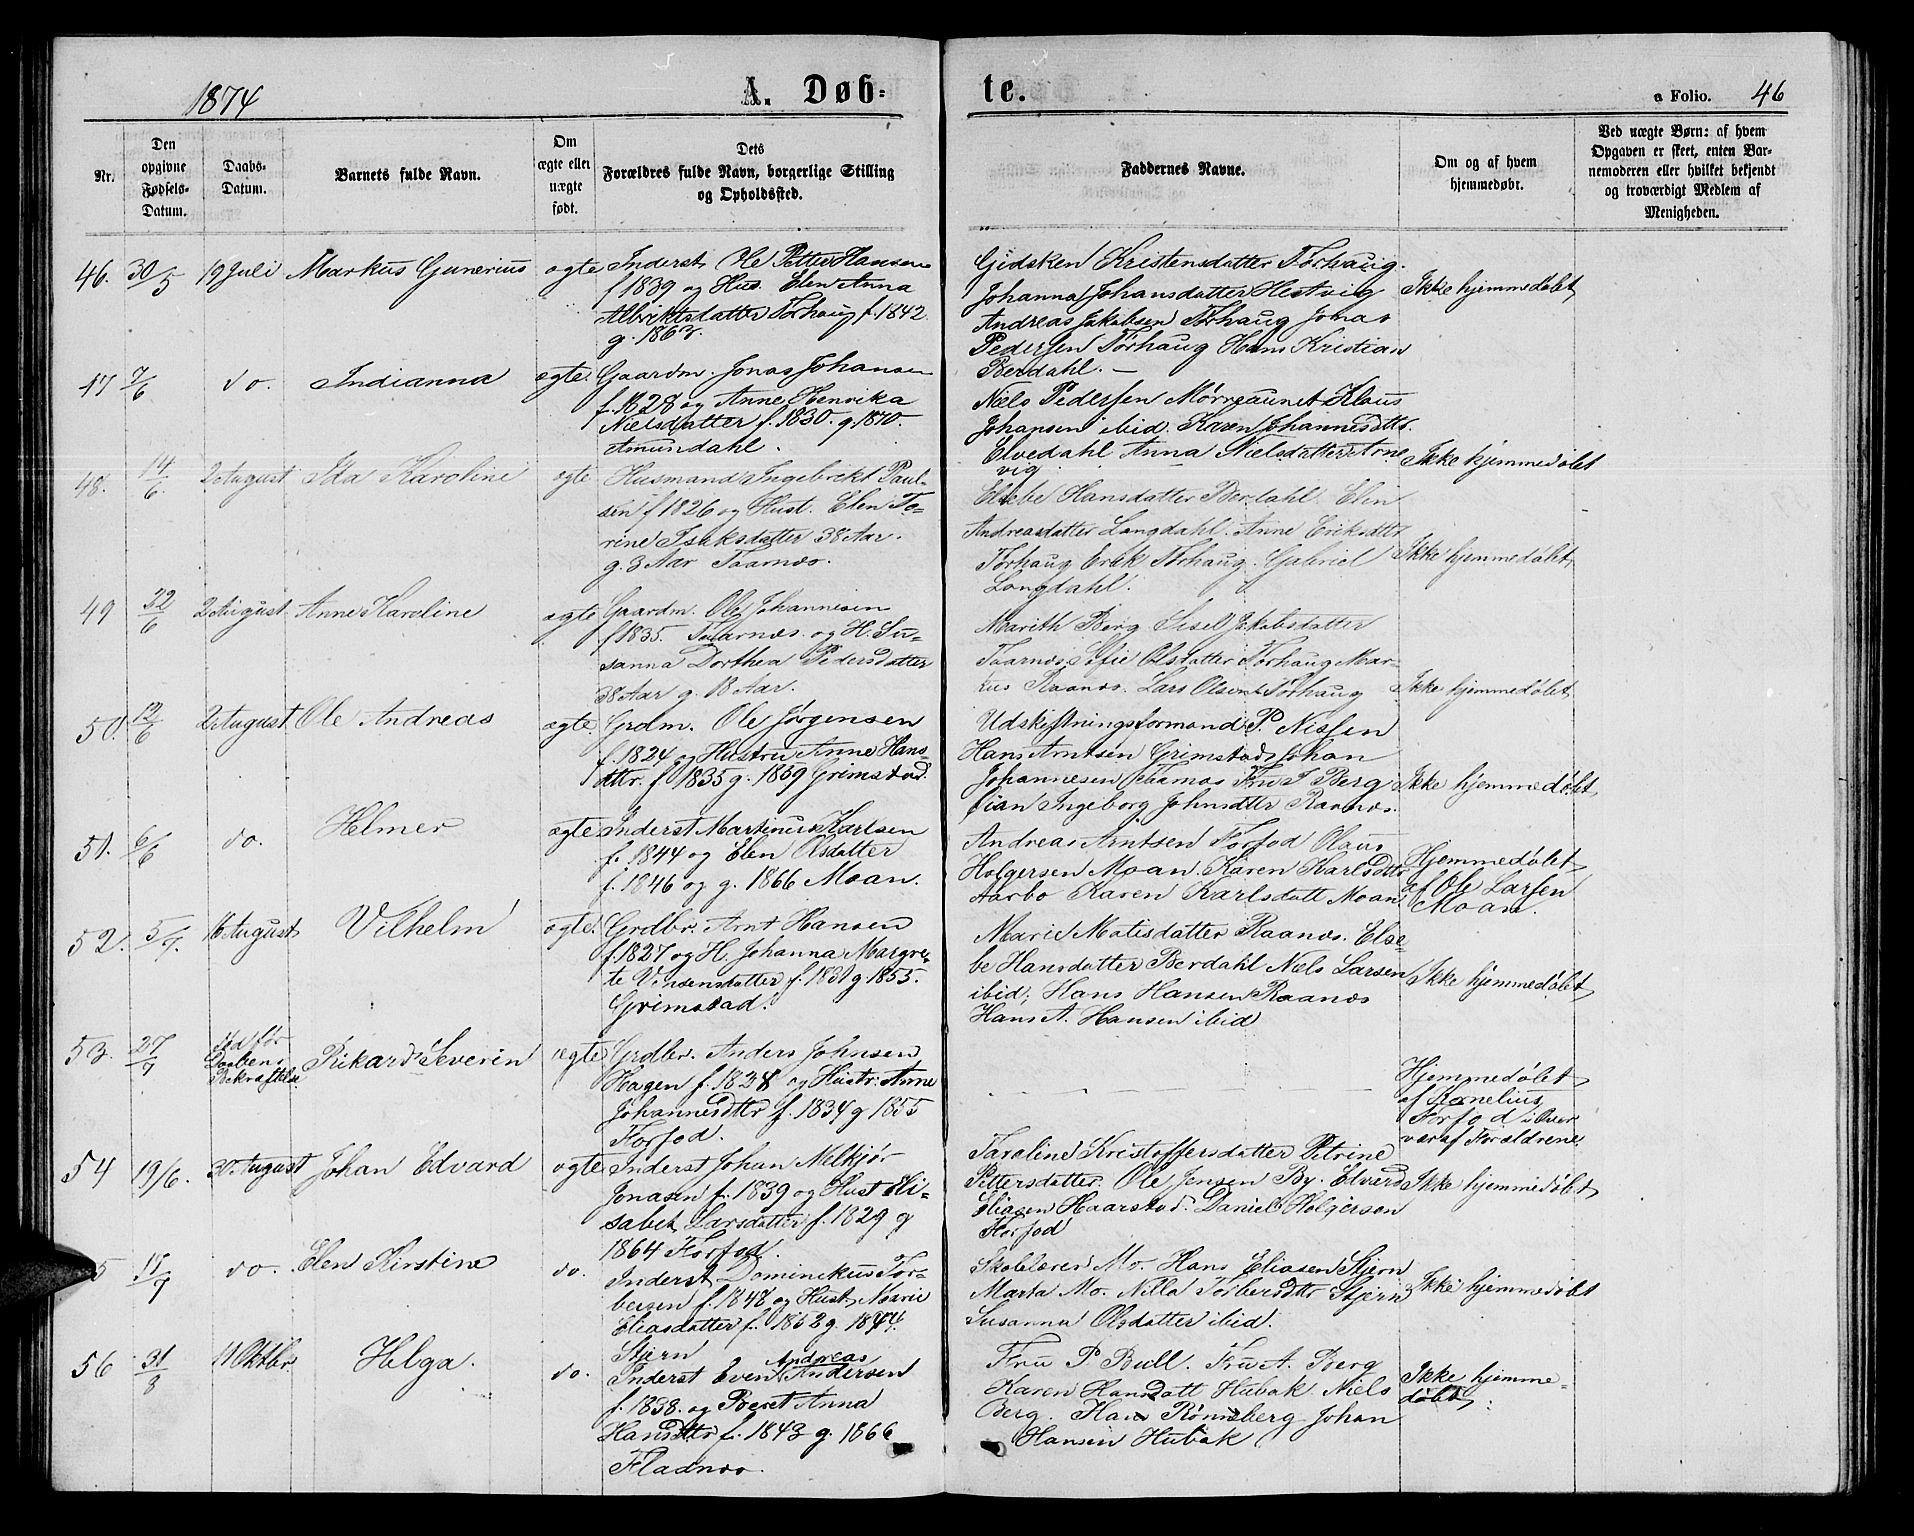 1874
A. Døb-
te.
a Folio. 46
Nr.
Den opgivne Fødsels-Datum.
Daabs-Datum.
Barnets fulde Navn.
Om ægte eller uægte født.
Dets Forældres fulde Navn, borgerlige Stilling og Opholdssted.
Faddernes Navne.
Om og af hvem hjemmedøbt.
Ved uægte Børn: af hvem Opgaven er skeet, enten Barnemoderen eller hvilket bekjendt og troværdigt Medlem af Menigheden.
46. 30/5 19 Juli Markus Gunerius ægte
Inderst Ole Petter Hansen
f 1839 og Hus. Elen Anna
Albriktsdatter Torhaug f. 1842.
g. 1863.
Gidsken Kristensdatter Torhaug.
Johanna Johansdatter Hestvig
Andreas Jakobsen Torhaug Jonas
Pedersen Torhaug Hans Kristian
Berdahl. —
Ikke hjemmedøbt
47 7/6 do. Indianna ægte.
Gaardm. Jonas Johansen
f. 1828 og Anne Henrika
Nielsdatter f. 1830. g. 1870.
Amundahl.
Niels Pedersen Mørreaunet Klaus
Johansen ibid. Karen Johannesdttr.
Elvedahl Anna Nielsdatter Arne
vig
Ikke hjemmedøbt
48. 14/6. 2 August Ida Karoline ægte
Husmand Ingebrikt Paul-
sen f 1826 og Hust. Elen To-
rine Isaksdatter 38 Aar.
g. 3 Aar Taarnes.
Elsebe Hansdatter Berdahl. Elin
Andreasdatter Langdahl. Anne Eriksdttr
Torhaug Erik Torhaug. Gabriel
Langdahl.
Ikke hjemmedøbt
49 22/6 2 August. Anne Karoline ægte
Gaardm. Ole Johannesen
f 1835. Taarnes. og H. Su-
sanna Dorthea Pedersdatter
38 Aar g. 18 Aar.
Marith Berg Sisel Jakobsdatter
Taarnes Sofie Olsdatter Torhaug Mar-
kus Raanes. Lars Olsen Torhaug
Ikke hjemmedøbt.
50. 12/6 2 August. Ole Andreas ægte.
Grdm. Ole Jørgensen
f. 1824 og Hustru Anne Hans-
dttr. f 1835 g. 1859 Grimstad.
Udskiftningsformand P. Nissen
Hans Arntsen Grimstad Johan
Johannesen Taarnes Fru S Berg
Ingeborg Johnsdttr Raanes.
Ikke hjemmedøbt
51. 6/6 do. Helmer ægte
Inderst Martinus Karlsen
f. 1844 og Elen Olsdatter
f. 1846 og g. 1866 Moan.
Andreas Arntsen Forfod Olaus
Holgersen Moan. Karen Karlsdttr
Aarbo Karen Karlsdatt Moan
Hjemmedøbt
af Ole Larsen
Moan.
52. 5/7. 16 August Vilhelm ægte.
Grdbr. Arnt Hansen
f. 1827 og H. Johanna Margre-
te Vinsensdatter f. 1831 g 1855.
Grimstad.
Marie Matisdatter Raanes. Else-
be Hansdatter Berdahl Niels Larsen
ibid; Hans Hansen Raanes
Hans A. Hansen ibid
Ikke hjemmedøbt
53. 27/7 død før
Daabens
Bekræftelse Rikard Severin ægte
Grdbr. Anders Johnsen
Hagen f. 1838 og Hustr: Anne
Johannesdttr f. 1834 g 1855
Forfod.
Hjemmedøbt
af Kornelius
Forfod i Over
vær af Forældrene
54 19/6. 30 August Johan Edvard ægte
Inderst Johan Melkjør
Jonasen f. 1839 og Hust Eli-
sabet Larsdatter f. 1829 g
1864 Forfod.
Taraline Kristoffersdatter Petrine
Pettersdatter. Ole Jensen By. Edvard
Eliasen Haarstad. Daniel Holgersen
Forfod
Ikke hjemmedøbt
5 17/7 do. Elen Kirstine do.
Inderst Dominikus Tor-
bersen f. 1848 og Hust. Marie
Eliasdatter f. 1852 g. 1874.
Stjern
Skolelærer Mo. Hans Eliasen Stjern
Marta Mo. Nilla Torbersdttr Stjern
Susanna Olsdatter ibid.
Ikke hjemmedøbt
56 31/8 11 Oktbr Helga. do.
Andreas
Inderst Even Andersen
f. 1838. og Beret Anna
Hansdttr f. 1843 g. 1866
Fladnes.
Fru P Bull. Fru A. Berg
Karen Hansdatt Hubak Niels
Berg. Hans Rønnsberg Johan
Hansen Hubak
Ikke hjemme-
døbt.